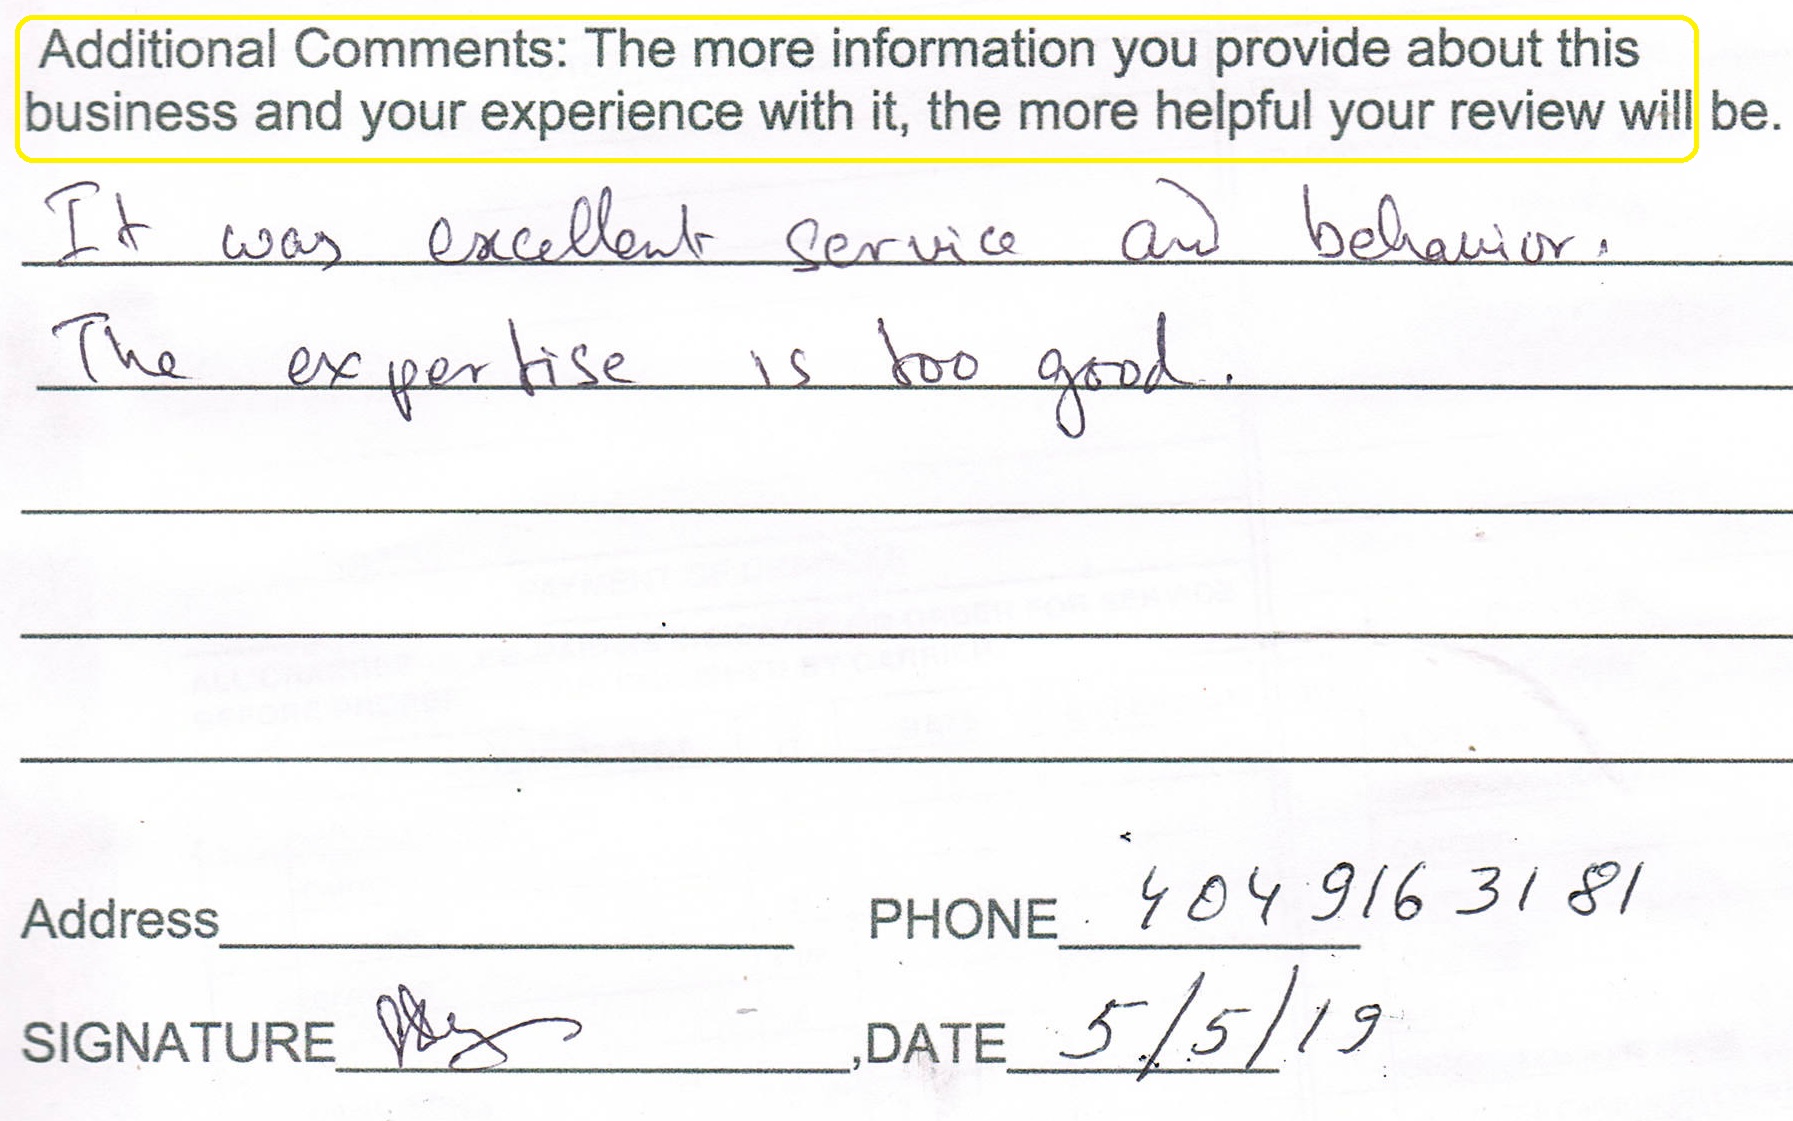 Additional Comments: The more information you provide about this
business and your experience with it, the more helpful your review will be.
It was excellent service and behavior.
The expertise is too good.
Address PHONE 404 916 3181
SIGNATURE ,DATE 5/5/19